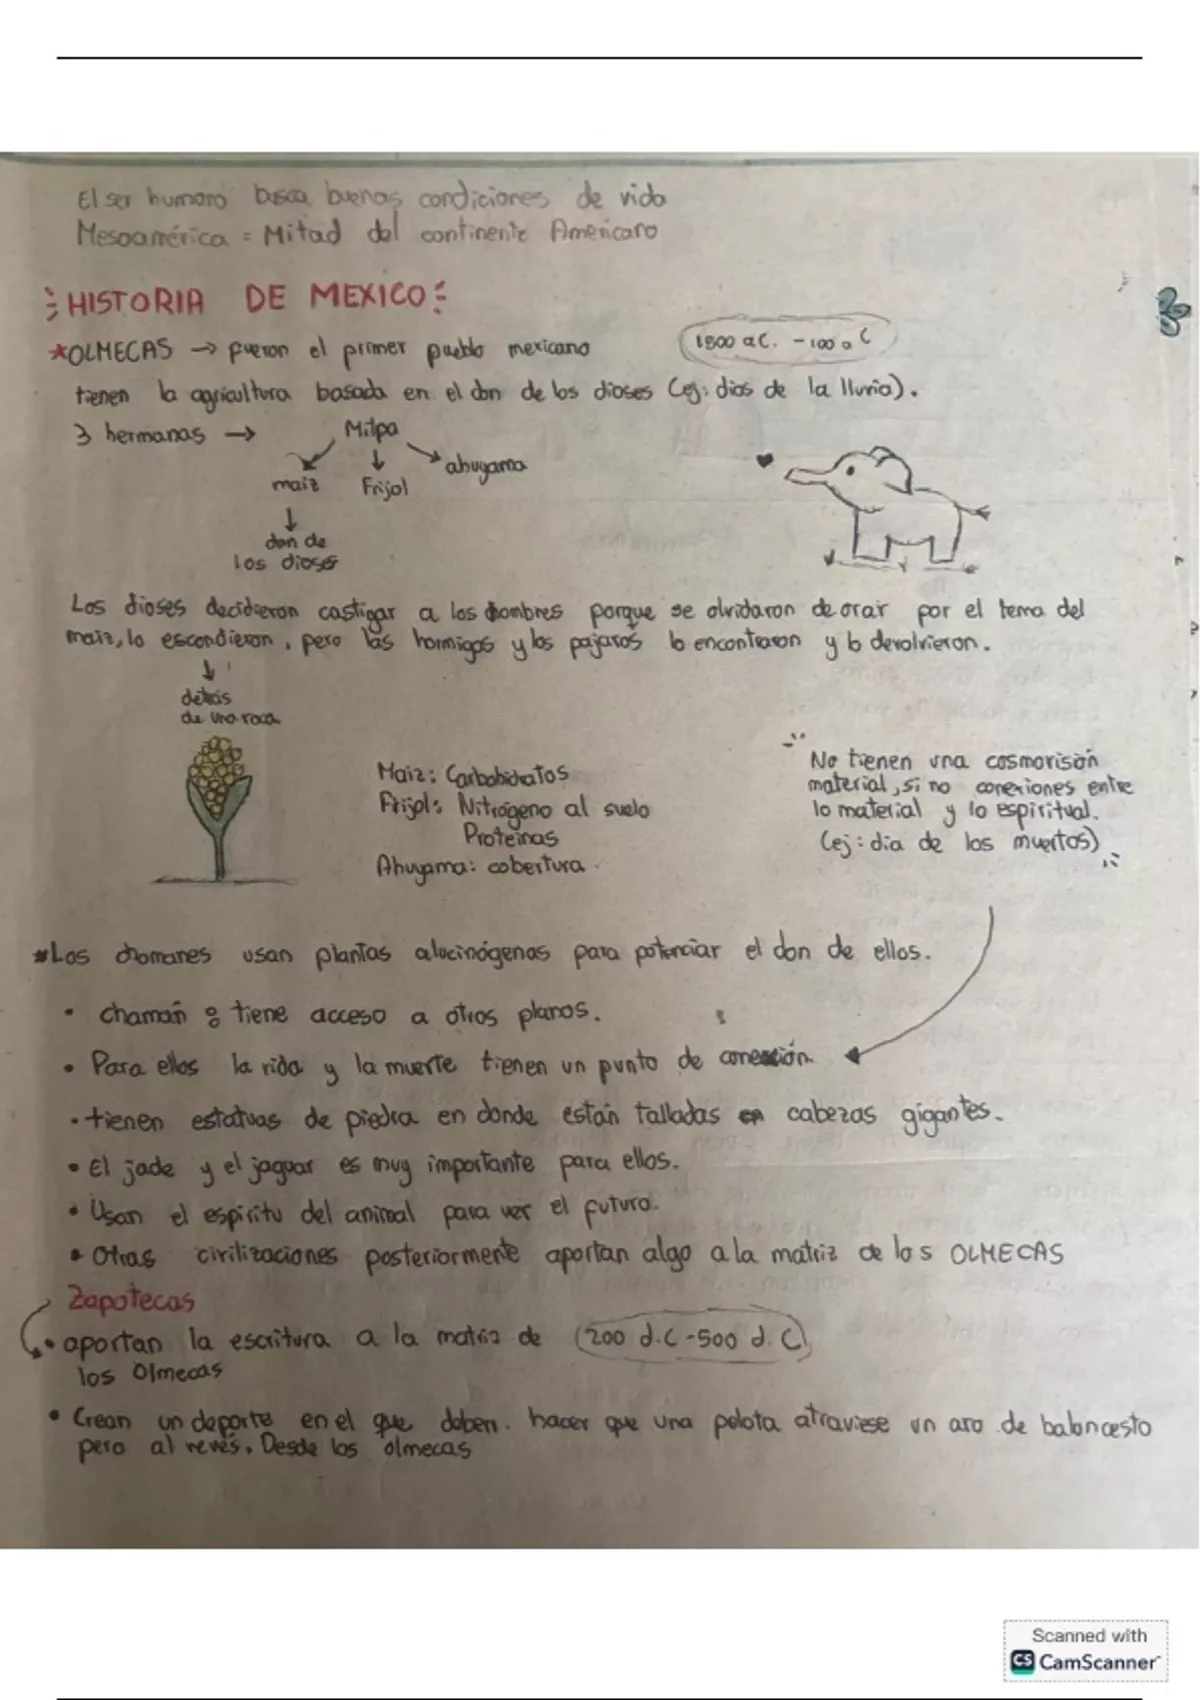 El ser humano busca buenas condiciones de vida
Mesoamérica = Mitad del continente Americano
HISTORIA DE MEXICO
★OLMECAS → fueron el primer pueblo mexicano
1500 a.C. - 100 a C
tienen la agricultura basada en el don de los dioses (ej: dios de la lluvia).
3 hermanas → Milpa
maíz Frijol ahuyama
don de
los dioses
Los dioses decidieron castigar a los hombres porque se olvidaron de orar por el tema del
maiz, lo escondieron, pero las hormigas y los pajaros lo encontraron y lo devolvieron.
detrás
de una roca
Maiz: Carbohidratos
Frijol: Nitrógeno al suelo
Proteinas
Ahuyama: cobertura.
No tienen una cosmovisión
material, si no conexiones entre
lo material y lo espiritual.
(ej: dia de los muertos)
*Los chamanes usan plantas alucinógenas para potenciar el don de ellos.
• chamán: tiene acceso a otros planos.
• Para ellos la vida y la muerte tienen un punto de conexión.
• tienen estatuas de piedra en donde están talladas cabezas gigantes.
• El jade y el jaguar es muy importante para ellos.
• Usan el espiritu del animal para ver el futuro.
• Otras civilizaciones posteriormente aportan algo a la matriz de los OLMECAS
Zapotecas
• aportan la escritura a la matriz de
los Olmecas
(200 d.C - 500 d.C)
• Crean un deporte en el que deben hacer que una pelota atraviese un aro de baloncesto
pero al revés. Desde los olmecas
Scanned with
CS CamScanner